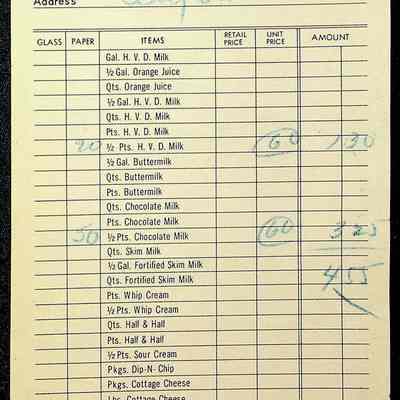 Address
GLASS PAPER ITEMS RETAIL PRICE UNIT PRICE AMOUNT
Gal. H. V. D. Milk
½ Gal. Orange Juice
Qts. Orange Juice
½ Gal. H. V. D. Milk
Qts. H. V. D. Milk
Pts. H. V. D. Milk
20 ½ Pts. H. V. D. Milk 60 1 30
½ Gal. Buttermilk
Qts. Buttermilk
Pts. Buttermilk
Qts. Chocolate Milk
Pts. Chocolate Milk
50 ½ Pts. Chocolate Milk 60 3 25
Qts. Skim Milk
½ Gal. Fortified Skim Milk 4 55
Qts. Fortified Skim Milk
Pts. Whip Cream
½ Pts. Whip Cream
Qts. Half & Half
Pts. Half & Half
½ Pts. Sour Cream
Pkgs. Dip-N- Chip
Pkgs. Cottage Cheese
Lbs. Cottage Cheese